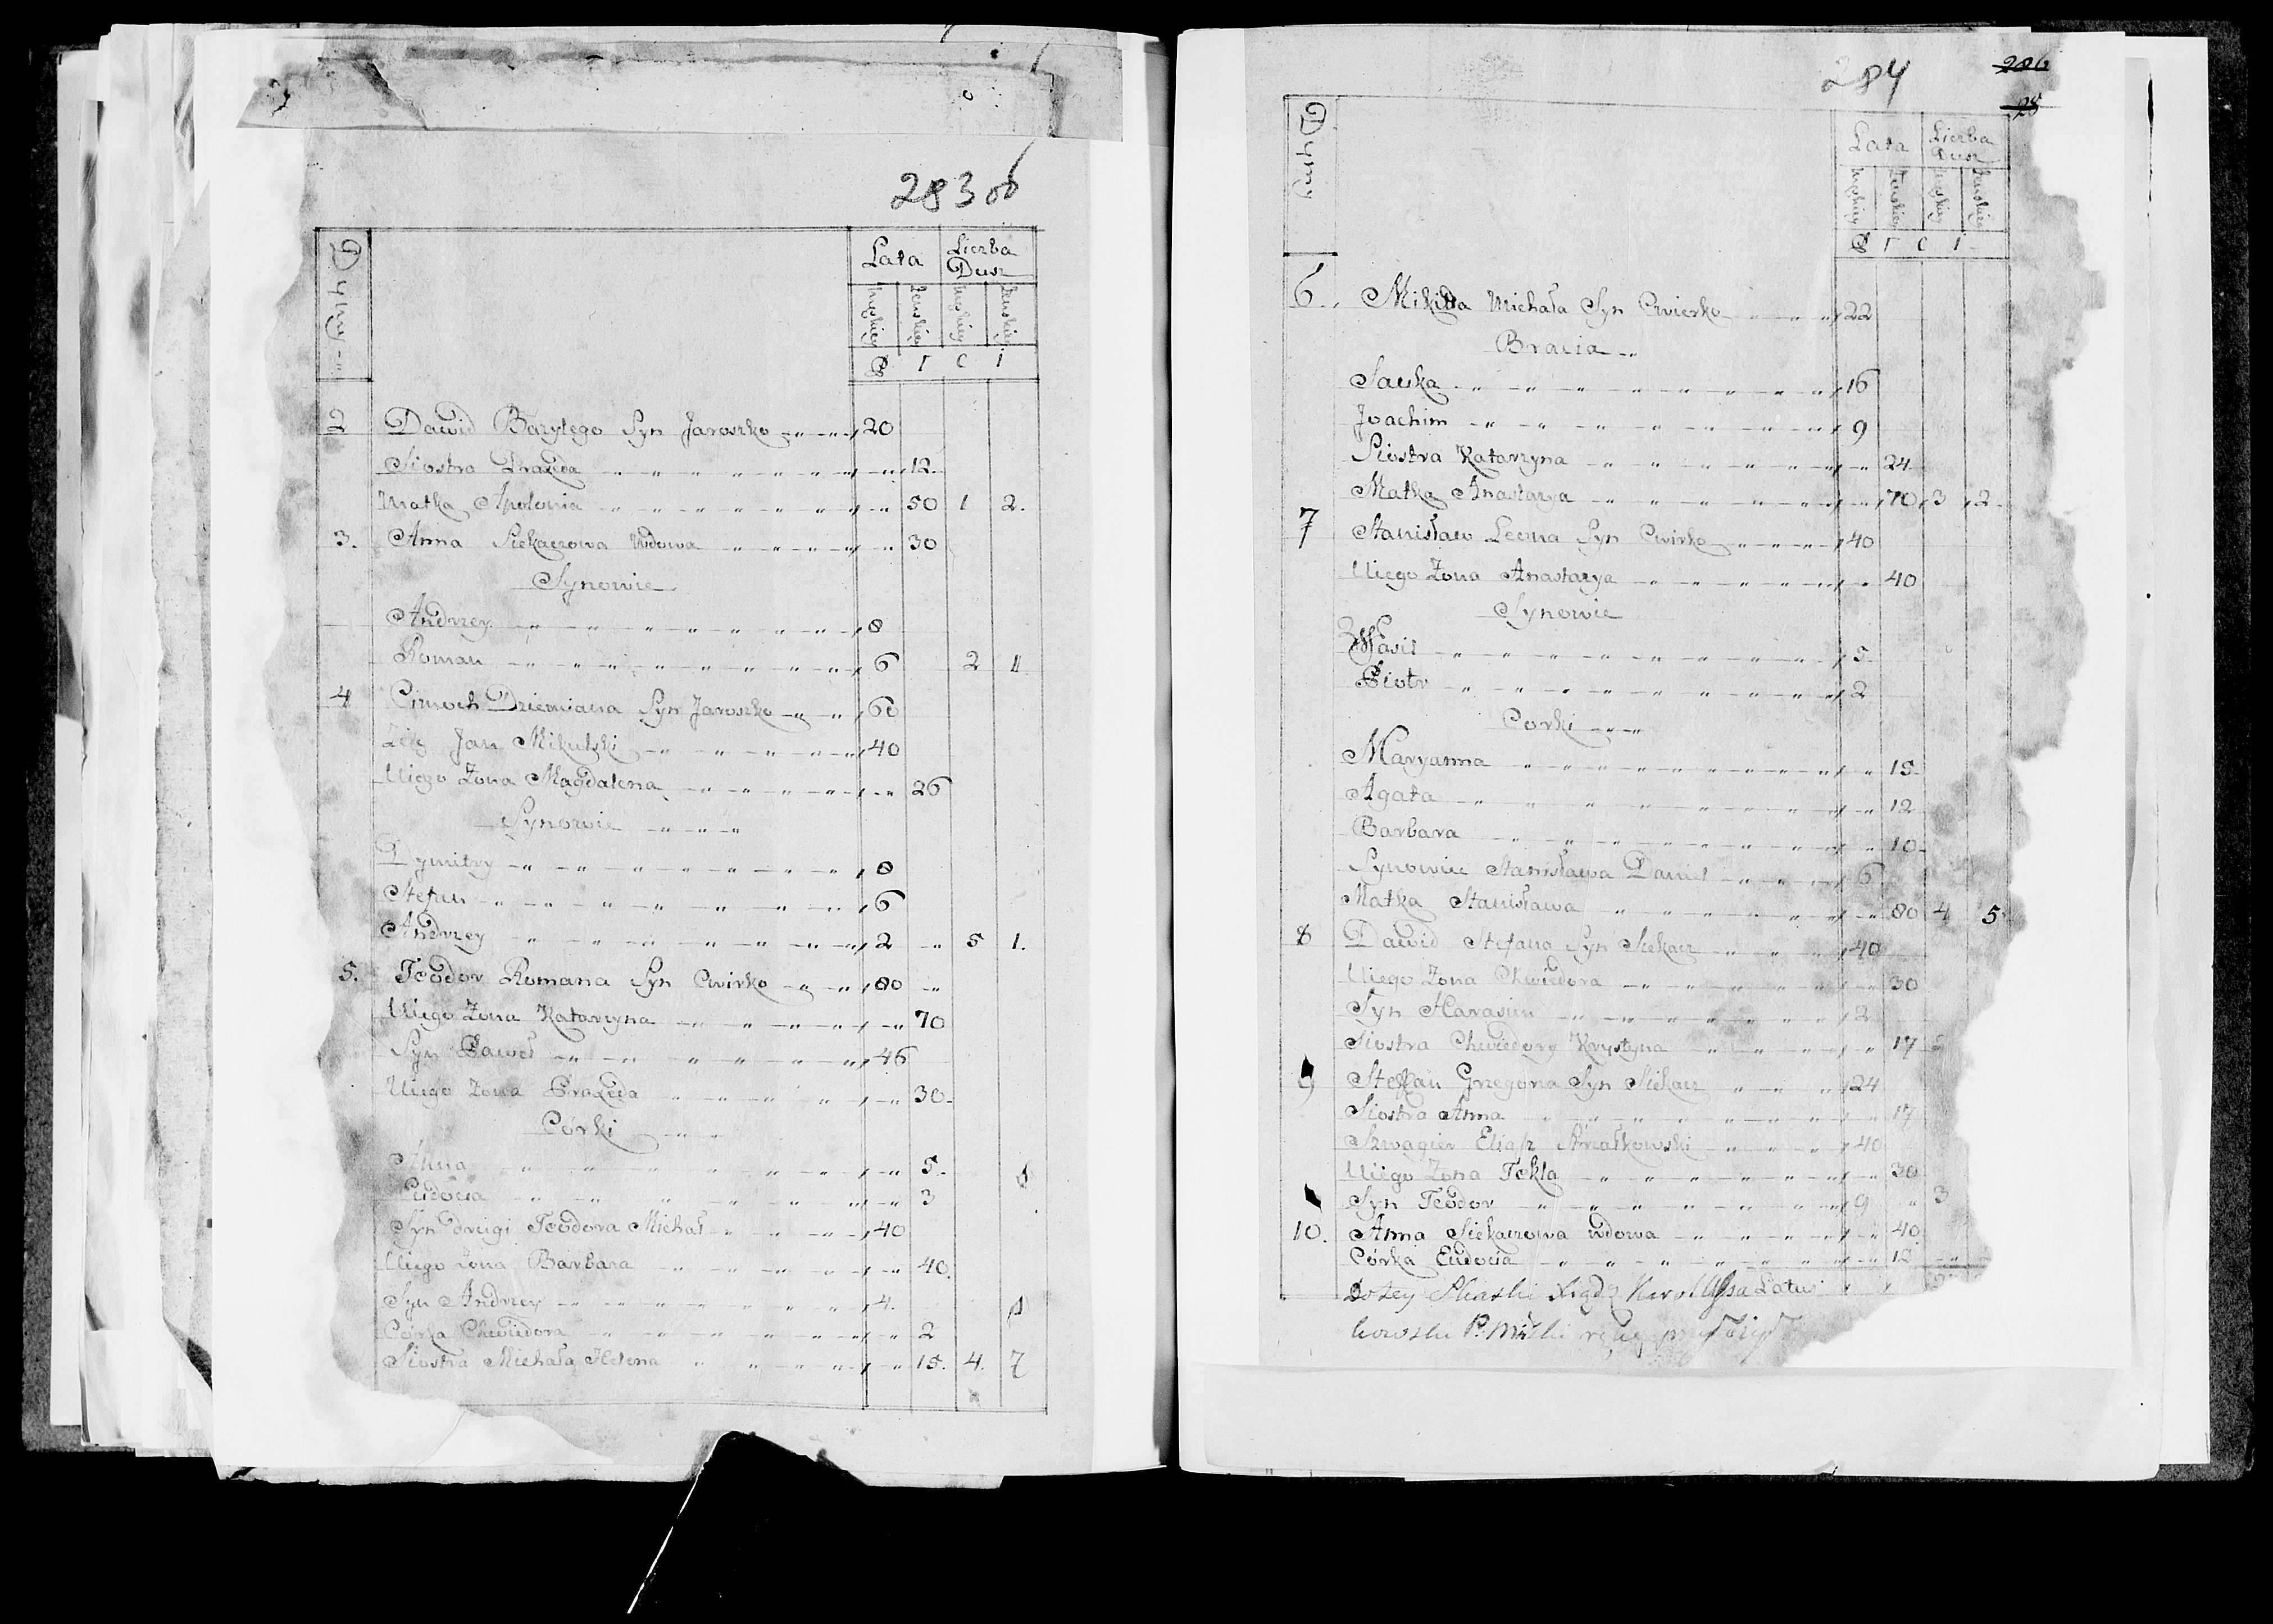 283 об
Dymy
Lata Liczba Dusz
Męskiey Żeńskiey Męskiey Żeńskiey
2 Dawid Bazylego Syn Jaroszko 20
Siostra 12
Matka Apolonia 50 1 2.
3. Anna Siekaczowa Wdowa 30
Synowie
Andrzey 8
Roman 6 2 1
4 Dziemiana Syn Jaroszko 60
Zięć Jan Mikulski 40
Uiego Żona Magdalena 26
Synowie
Dymitry 8
Stefan 6
Andrzey 2 5 1.
5. Teodor Romana Syn Cwirko 80
Uiego Żona Katarzyna 70
Syn Paweł 46
Uiego Żona Praxeda 30
Córki
Anna 5
Eudocia 3
Syn drugi Teodora Michał 40
Uiego Żona Barbara 40
Syn Andrzey 4.
Córka Chwiedora 2
Siostra Michała Helena 15. 4. 7
284
286
28
Dymy
Lata Liczba Dusz
Męskiey Żeńskiey Męskiey Żeńskiey
6 Mikita Michała Syn Cwierko 22
Bracia
Sawka 16
Joachim 9
Siostra Katarzyna 24
Matka Anastazya 70 3 2
7 Stanisław Leona Syn Cwirko 40
Uiego Żona Anastazya 40
Synowie
Wasil 5
Piotr 2
Corki
Maryanna 15
Agata 12
Barbara 10
Synowiec Stanisława Daniel 6
Matka Stanisława 80 4 5
8 Dawid Stefana Syn Siekacz 40
Uiego Żona Chwiedora 30
Syn Harasim 2
Siostra Chwiedory Krystyna 17
9 Steffan Grzegorza Syn Siekacz 24
Siostra Anna 17
Szwagier Eliasz Strzałkowski 40
Uiego Żona Tekla 30
Syn Teodor 9 3
10. Anna Siekaczowa wdowa 40
Córka Eudocia 12